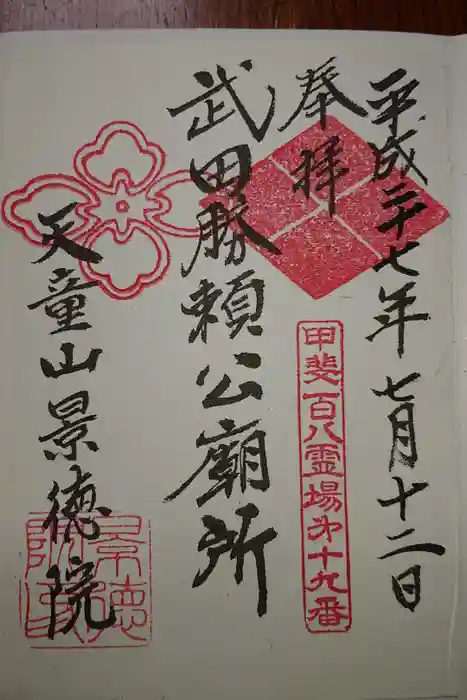 平成二十七年七月十二日
奉拝
甲斐百八霊場第十九番
武田勝頼公廟所
天童山景徳院
景徳院印